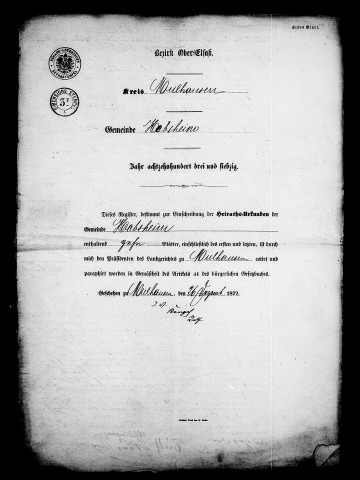 Erstes Blatt.
Bezirk Ober-Elsaß.
Kreis Mülhausen
Gemeinde Habsheim
Jahr achtzehnhundert drei und siebzig.
Dieses Register, bestimmt zur Einschreibung der Heiraths-Urkunden der
Gemeinde Habsheim
enthaltend zehn Blätter, einschließlich des ersten und letzten, ist durch
mich den Präsidenten des Landgerichts zu Mülhausen cotirt und
paraphirt worden in Gemäßheit des Artikels 41 des bürgerlichen Gesetzbuches.
Geschehen zu Mülhausen, den 26 Dezemb 1872.